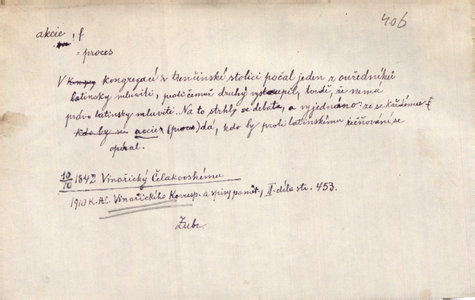 406
akcie, f
= proces
V kongregací v trenčínské stolici počal jeden z ouředníků
latinsky mluviti, protičemuž druhý vystoupil, tvrdě, že nemá
právo latinsky mluviti. Na to strhla se debata, a vyjednáno že se každému
kdo by akcie (proces) dá, kdo by proti latinskému řečňování se
opíral.
10/10 1842 Vinařický Čelakovskému
1910 K. Al. Vinařického Korresp. a spisy pamět., II. díla str. 453.
Zubr.